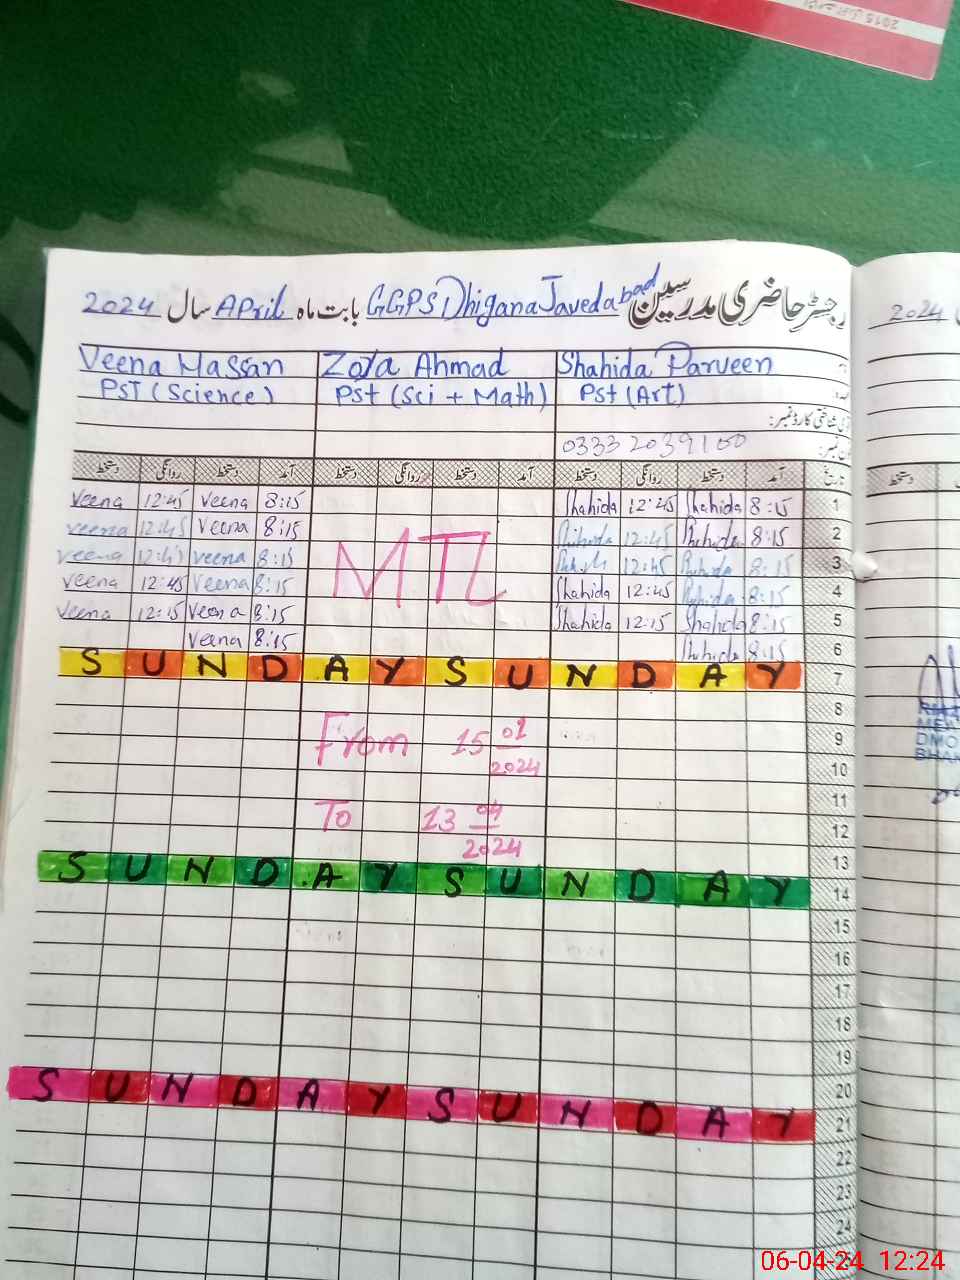 2015
رجسٹر حاضری مدرسین GGPS Dhigana Javedabad بابت ماہ April سال 2024
2024
Veena Hassan Zoya Ahmad Shahida Parveen
PST (Science) Pst (Sci + Math) Pst (Art)
شناختی کارڈ نمبر:
0333 2039100
دستخط روانگی دستخط آمد دستخط روانگی دستخط آمد دستخط روانگی دستخط آمد تاریخ
دستخط
Veena 12:45 Veena 8:15 Shahida 12:45 Shahida 8:15 1
Veena 12:45 Veena 8:15 Shahida 12:45 Shahida 8:15 2
Veena 12:45 Veena 8:15 12:45 Shahida 8:15 3
MTL
Veena 12:45 Veena 8:15 Shahida 12:45 Shahida 8:15 4
Veena 12:15 Veena 8:15 Shahida 12:15 Shahida 8:15 5
Veena 8:15 Shahida 8:15 6
S U N D A Y S U N D A Y 7
8
From 15 01 2024 9
10
11
To 13 04 2024 12
13
S U N D A Y S U N D A Y 14
15
16
17
18
19
20
S U N D A Y S U N D A Y 21
22
23
24
06-04-24 12:24